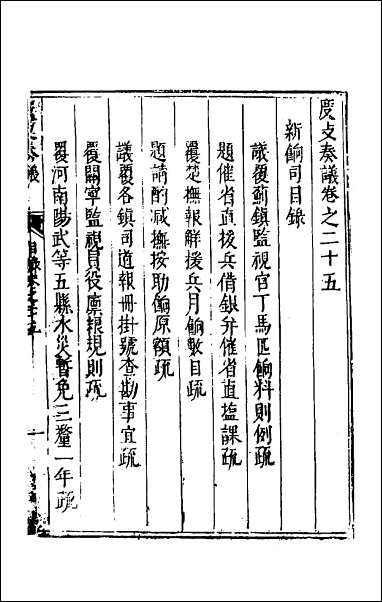 度支奏議卷之二十五
新餉司目錄
議覆薊鎮監視官丁馬匹餉料則例疏
題催省直援兵借銀并催省直鹽課疏
覆楚撫報解援兵月餉數目疏
題請酌减撫按助餉原額疏
議覆各鎮司道報冊掛號查勘事宜疏
覆關寧監視員役廩粮規則疏
覆河南陽武等五縣水災暫免三釐一年疏
度支奏議
目錄卷之二十五
一